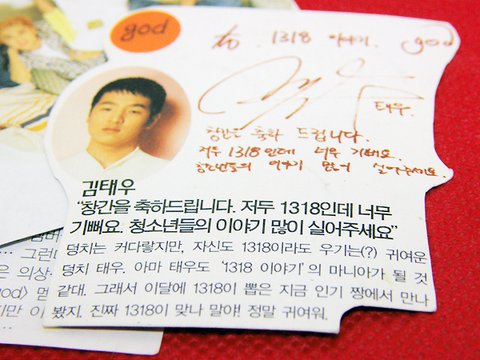 god
to. 1318 이야기. god
태우.
창간을 축하 드립니다.
저두 1318인데 너무 기뻐요.
청소년들의 이야기 많이 실어주세요.
김태우
“창간을 축하드립니다. 저두 1318인데 너무
기뻐요. 청소년들의 이야기 많이 실어주세요”
덩치는 커다랗지만, 자신도 1318이라도 우기는(?) 귀여운
덩치 태우. 아마 태우도 ‘1318 이야기’의 마니아가 될 것
같대. 그래서 이달에 1318이 뽑은 지금 인기 짱에서 만나
봤지. 진짜 1318이 맞나 말야! 정말 귀여워.
그런데
의상
god> 멤
지만 이